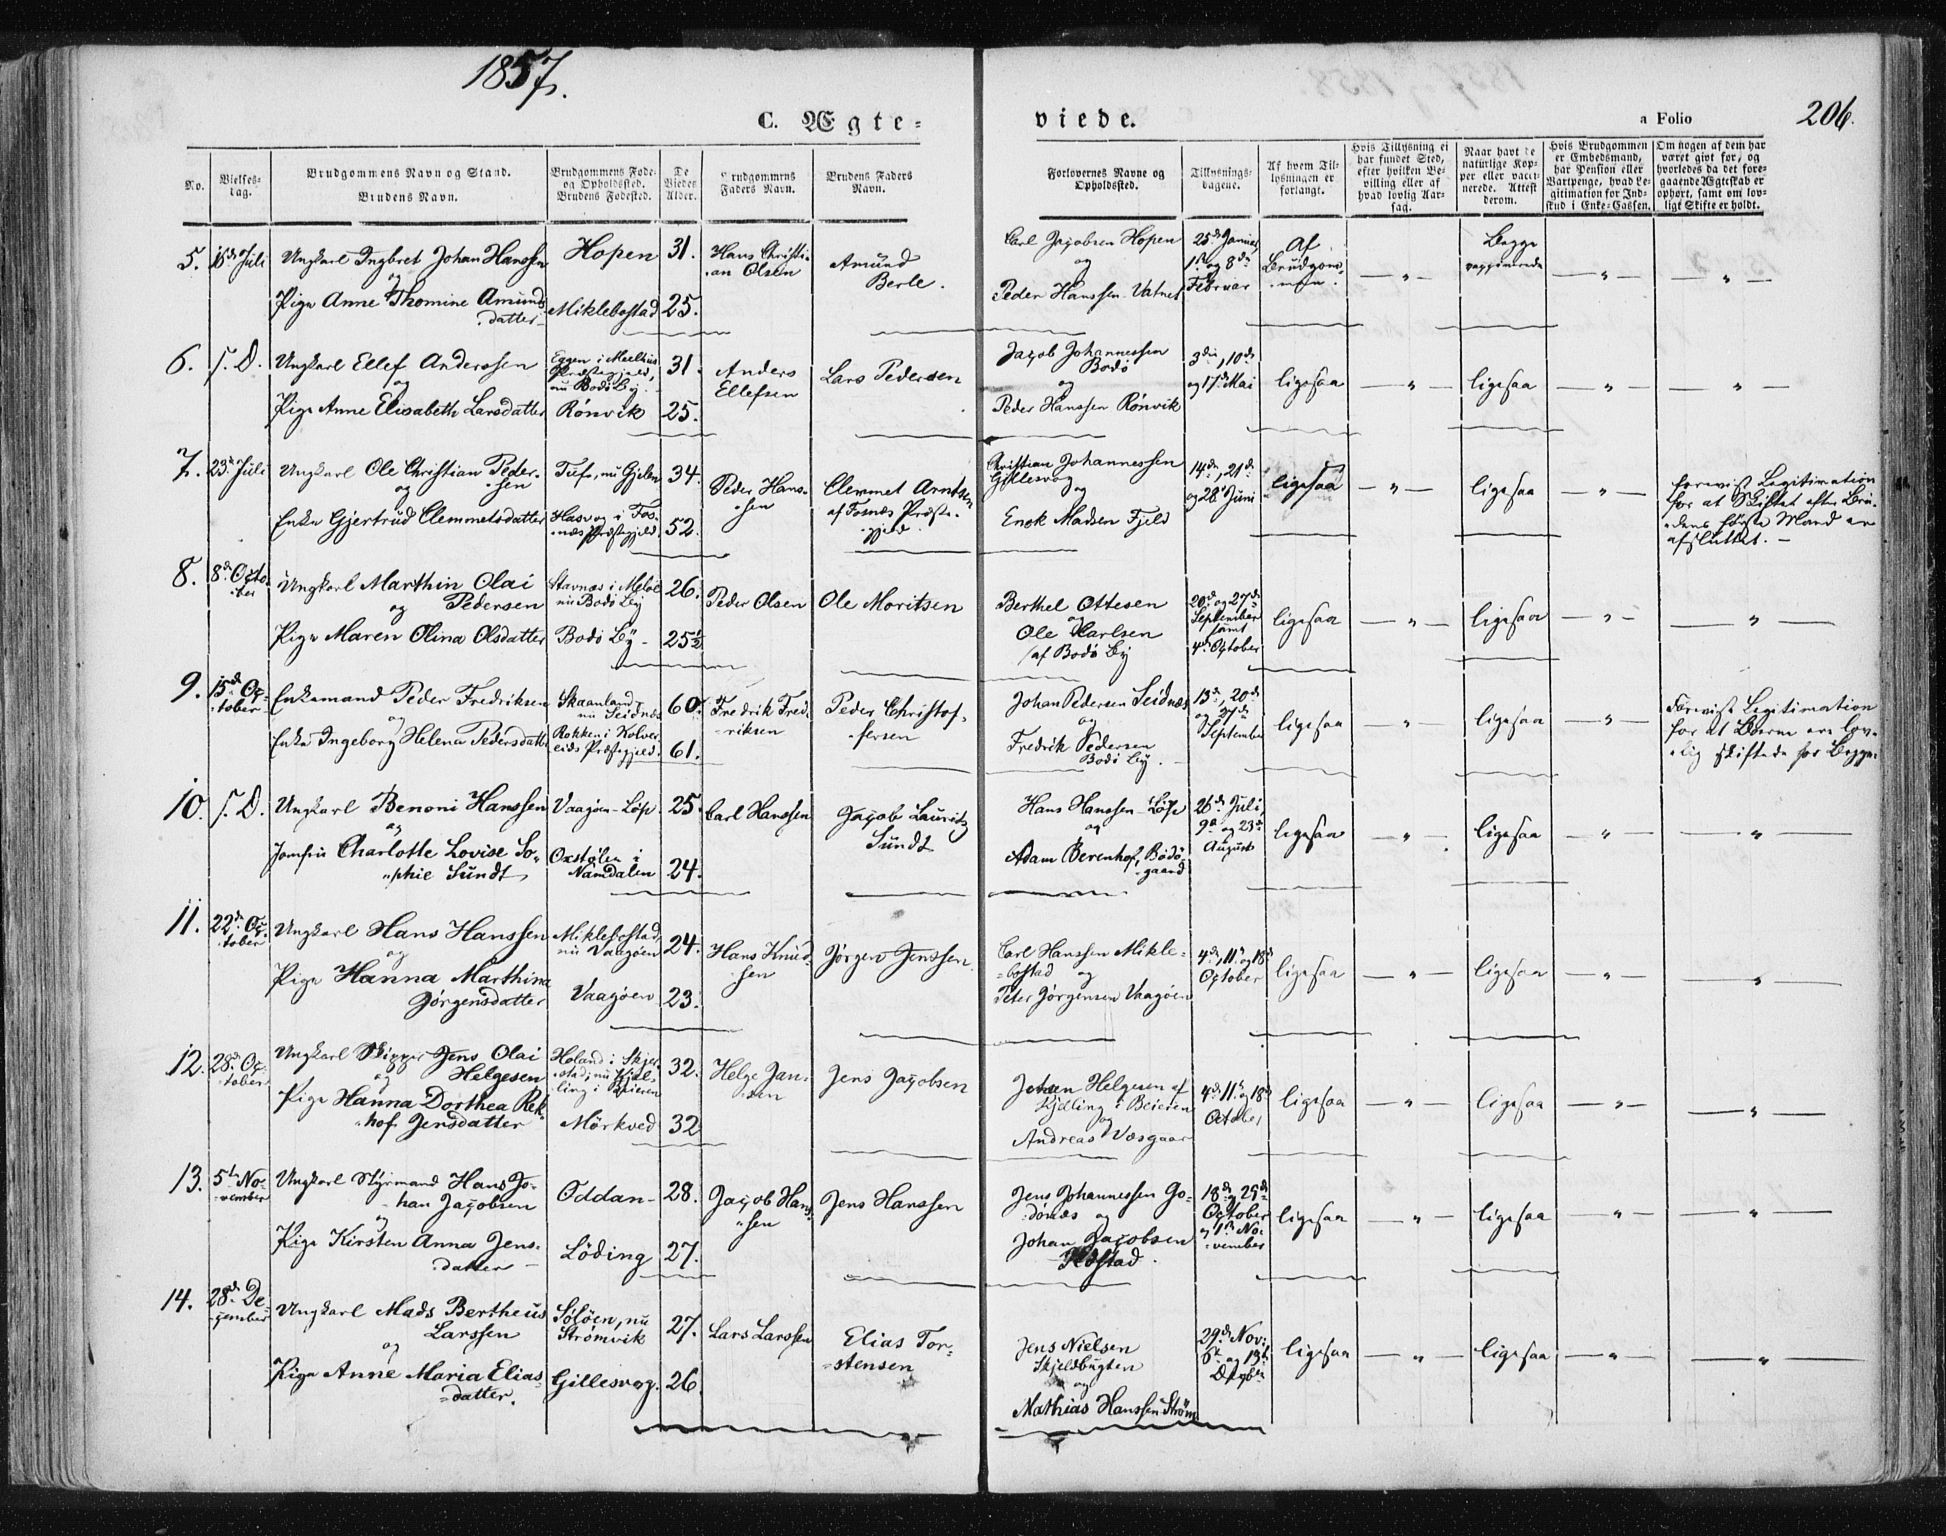 1857.
206.
C. Ægte-
viede.
a Folio
No.
Vielses-
dag.
Brudgommens Navn og Stand.
Brudens Navn.
Brudgommens Føde-
og Opholdssted.
Brudens Fødested.
De
Viedes
Alder.
Brudgommens
Faders Navn.
Brudens Faders
Navn.
Forlovernes Navne og
Opholdssted.
Tillysnings-
dagene.
Af hvem Til-
lysningen er
forlangt.
Hvis Tillysning ei
har fundet Sted,
efter hvilken Be-
villing eller af
hvad lovlig Aar-
sag.
Naar havt de
naturlige Kop-
per eller vacci-
nerede. Attest
derom.
Hvis Brudgommen
er Embedsmand,
har Pension eller
Vartpenge, hvad Le-
gitimation for Ind-
skud i Enke-Cassen.
Om nogen af dem har
været givt før, og
hvorledes da det fore-
gaaende Ægteskab er
ophørt, samt om lov-
ligt Skifte er holdt.
5.
16de Juli
Ungkarl Ingbret Johan Hanssen
og
Pige Anne Thomine Amunds-
datter
Hopen
Miklebostad
31.
25.
Hans Christi-
an Olsen
Amund
Berle.
Carl Jacobsen Hopen
og
Peder Hanssen Vatnet
25de Januar
1ste og 8de
Februar
Af
Brudgom-
men.
— „ —
Begge
vaccinerede
— „ —
— „ —
6.
S. D.
Ungkarl Ellef Anderssen
og
Pige Anne Elisabeth Larsdatter
Eggen i Meelhus
Præstegjeld,
nu Bodø By.
Rønvik
31.
25.
Anders
Ellefsen
Lars Pedersen
Jacob Johannessen
Bodø
og
Peder Hanssen Rønvik
3die, 10de
og 17de Mai
ligesaa
— „ —
ligesaa
— „ —
— „ —
7.
23de Juli
Ungkarl Ole Christian Peder-
sen
og
Enke Gjertrud Clemmetsdatter
Tuf, nu Gjelen
Hasvog i Fos-
næs Præstegjeld.
34.
52.
Peder Hans-
sen
Clemmet Arntsen
af Fosnæs Præste-
gjeld.
Christian Johannessen
Gillesvog
og
Enok Madsen Fjeld
14de, 21de
og 28de Juni
ligesaa
— „ —
ligesaa
— „ —
Foreviist Legitimation
for at Skiftet efter Bru-
dens første Mand er
afsluttet. —
8.
8de Octo-
ber
Ungkarl Marthin Olai
og Pedersen
Pige Maren Olina Olsdatter
Stavnæs i Meløe
nu Bodø By
Bodø By
26.
25½
Peder Olsen
Ole Moritsen
Berthel Ottesen
og
Ole Karlsen
af Bodø By
20de og 27de
September
samt
4de October
ligesaa
— „ —
ligesaa
— „ —
— „ —
9.
15de Oc-
tober
Enkemand Peder Fredriksen
og
Enke Ingeborg Helena Pedersdatter
Skaanland,
nu Seidnæs
Rokken i Kolver-
eids Præstegjeld.
60.
61.
Fredrik Fred-
riksen
Peder Christof-
fersen
Johan Pedersen Seidnæs
og
Fredrik Pedersen
Bodø By.
13de, 20de
og 27de
September
ligesaa
— „ —
ligesaa
— „ —
Foreviist Legitimation
for at Børne ere lov-
lig skiftede for Begge.
10.
S. D.
Ungkarl Benoni Hanssen
og
Jomfru Charlotte Lovise So-
phie Sundt
Vaagøen-Løp.
Oxstølen i
Namdalen
25.
24.
Carl Hanssen
Jacob Lauritz
Sundt
Hans Hanssen Løp
og
Adam Berenhof, Bodø-
gaard
26de Juli,
9de og 23de
August
ligesaa
— „ —
ligesaa
— „ —
— „ —
11.
22de Oc-
tober
Ungkarl Hans Hanssen
og
Pige Hanna Marthina
Jørgensdatter
Miklebostad,
nu Vaagøen
Vaagøen
24.
23.
Hans Knud-
sen
Jørgen Jenssen
Carl Hanssen Mikle-
bostad og
Peter Jørgensen Vaagøen
4de, 11te og 18de
October
ligesaa
— „ —
ligesaa
— „ —
— „ —
12.
28de Oc-
tober
Ungkarl Skipper Jens Olai
og Helgesen
Pige Hanna Dorthea Rek-
hof Jensdatter
Holand i Skjer-
stad, nu Kjel-
ling i Beieren
Mørkved
32.
32
Helge Jan-
sen
Jens Jacobsen
Jensen Helgesen af
Kjelling i Beieren
og
Andreas Væsgaar
4de 11te og 18de
October
ligesaa
— „ —
ligesaa
— „ —
— „ —
13.
5te No-
vember
Ungkarl Styrmand Hans Jo-
han Jacobsen
og
Pige Kirsten Anna Jens-
datter
Oddan
Løding
28.
27.
Jacob Hans-
sen
Jens Hanssen
Jens Johannessen Go-
dønæs og
Johan Jacobsen
Kostad.
18de og 25de
October
og 1ste No-
vember
ligesaa
— „ —
ligesaa
— „ —
— „ —
14.
28de De-
cember
Ungkarl Mads Bertheus
Larssen
og
Pige Anne Maria Elias-
datter.
Søløen, nu
Strømvik
Gillesvog.
27.
26.
Lars Larssen
Elias Tor-
stensen
Jens Nielsen
Skjelbugten
og
Mathias Hanssen Strøm
29de Nov:
6te og 13de
Decbr
ligesaa
— „ —
ligesaa
— „ —
— „ —